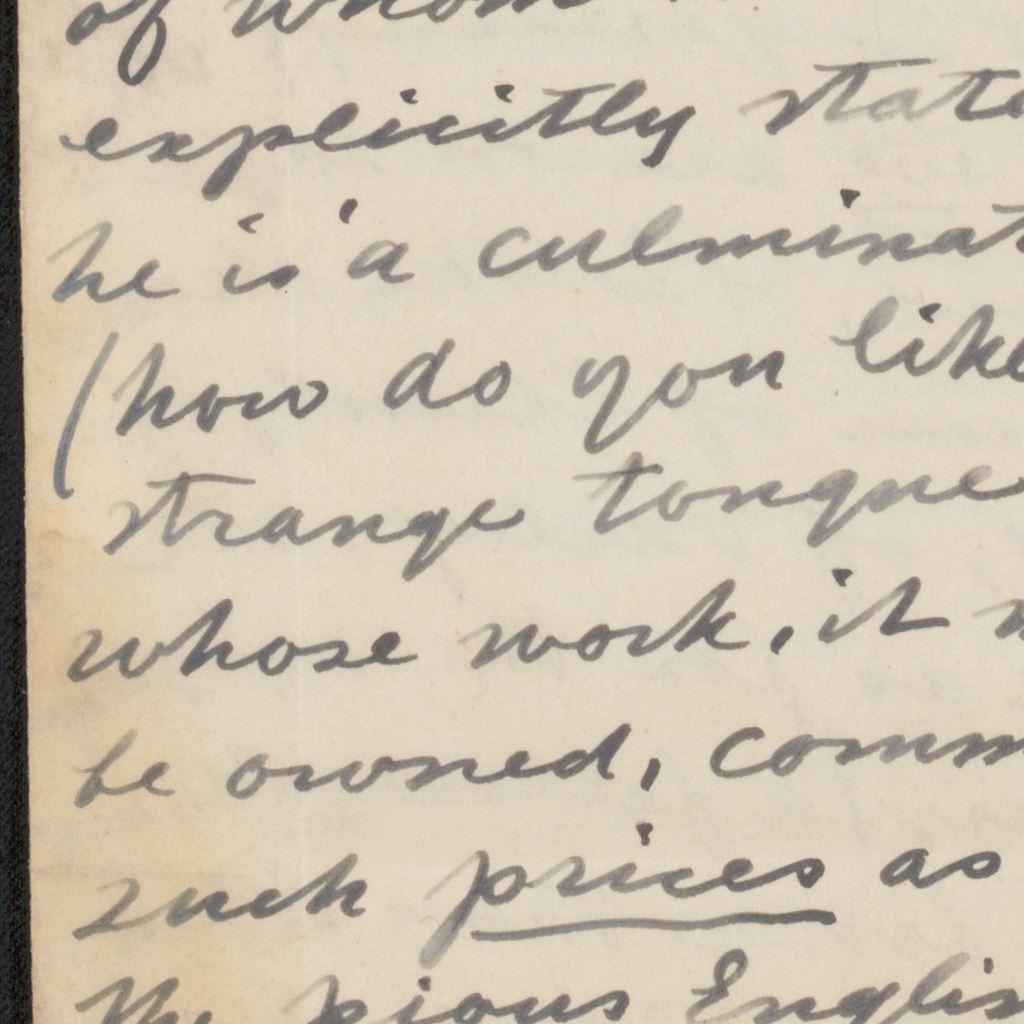 of whom
explicitly state
he is 'a culminat
(how do you like
strange tongue
whose work, it
be owned, comm
such prices as
the pious Englis